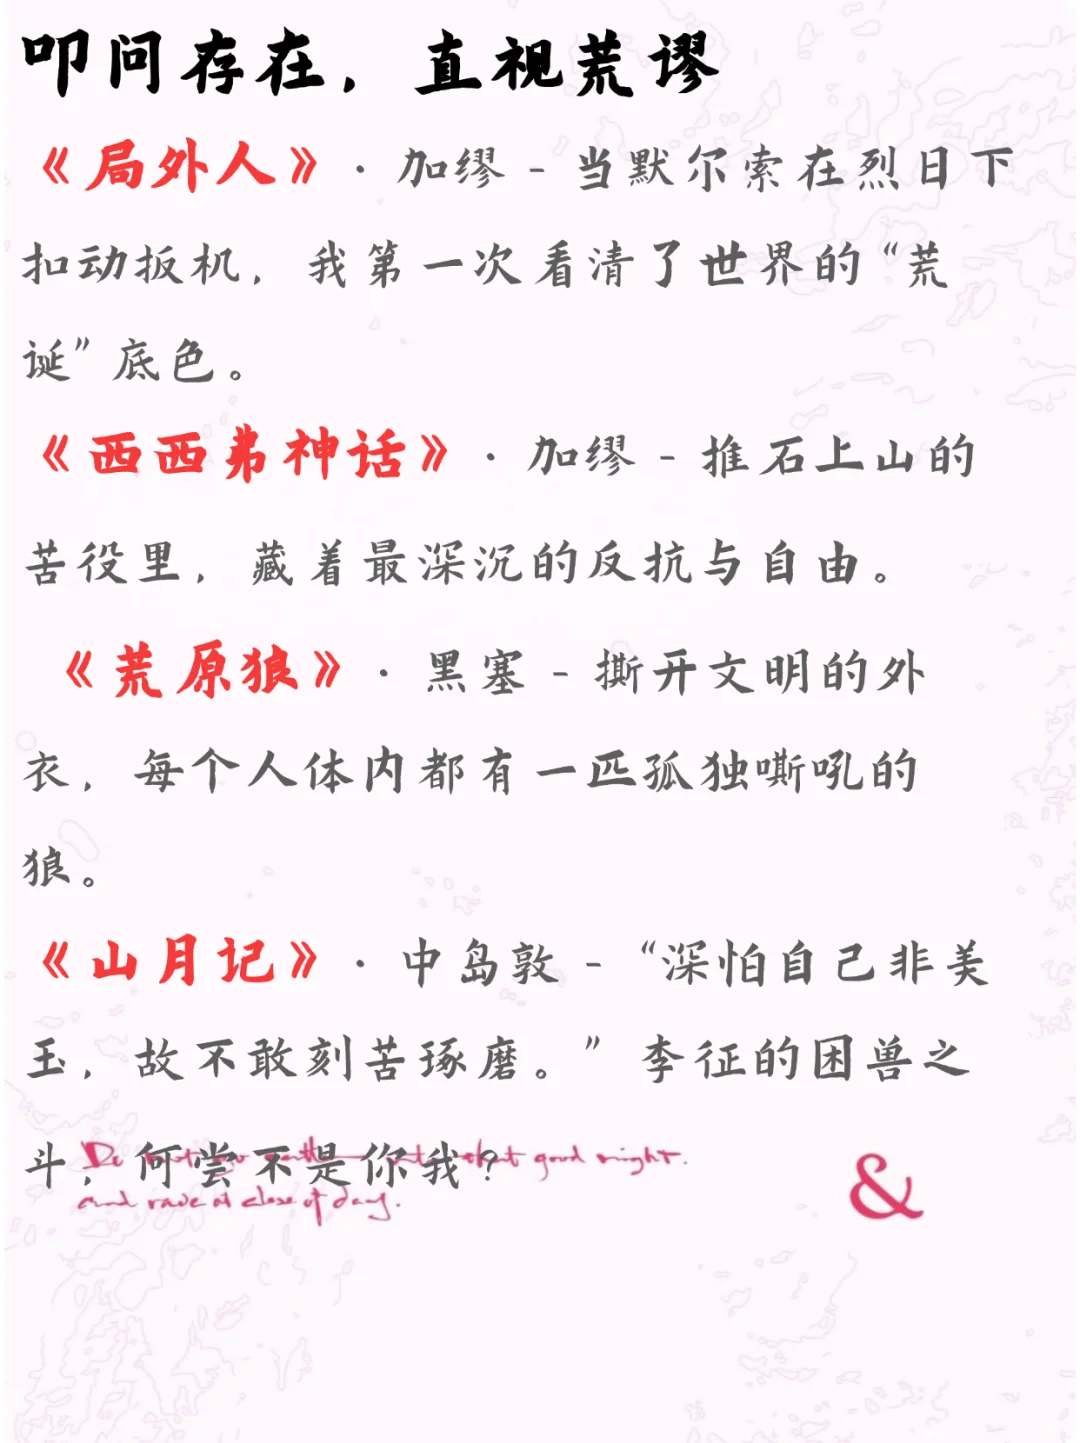 叩问存在，直视荒谬
《局外人》· 加缪 - 当默尔索在烈日下
扣动扳机，我第一次看清了世界的“荒
诞”底色。
《西西弗神话》· 加缪 - 推石上山的
苦役里，藏着最深沉的反抗与自由。
《荒原狼》· 黑塞 - 撕开文明的外
衣，每个人体内都有一匹孤独嘶吼的
狼。
《山月记》· 中岛敦 - “深怕自己非美
玉，故不敢刻苦琢磨。” 李征的困兽之
斗，何尝不是你我？
Do not go gentle that good night.
and rave at close of day.
&